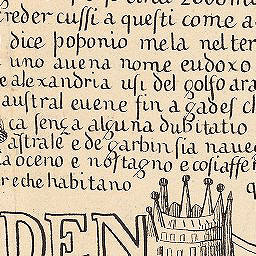 reder cussi a questi come a
dice poponio mela nel ter
uno auena nome eudoxo
e alexandria usi del golfo ara
austral euene fin a gades ch
ca senza alguna dubitatio
astrale e de garbin sia naueg
a oceno e nostagno e cosi affe
re che habitano
DEN